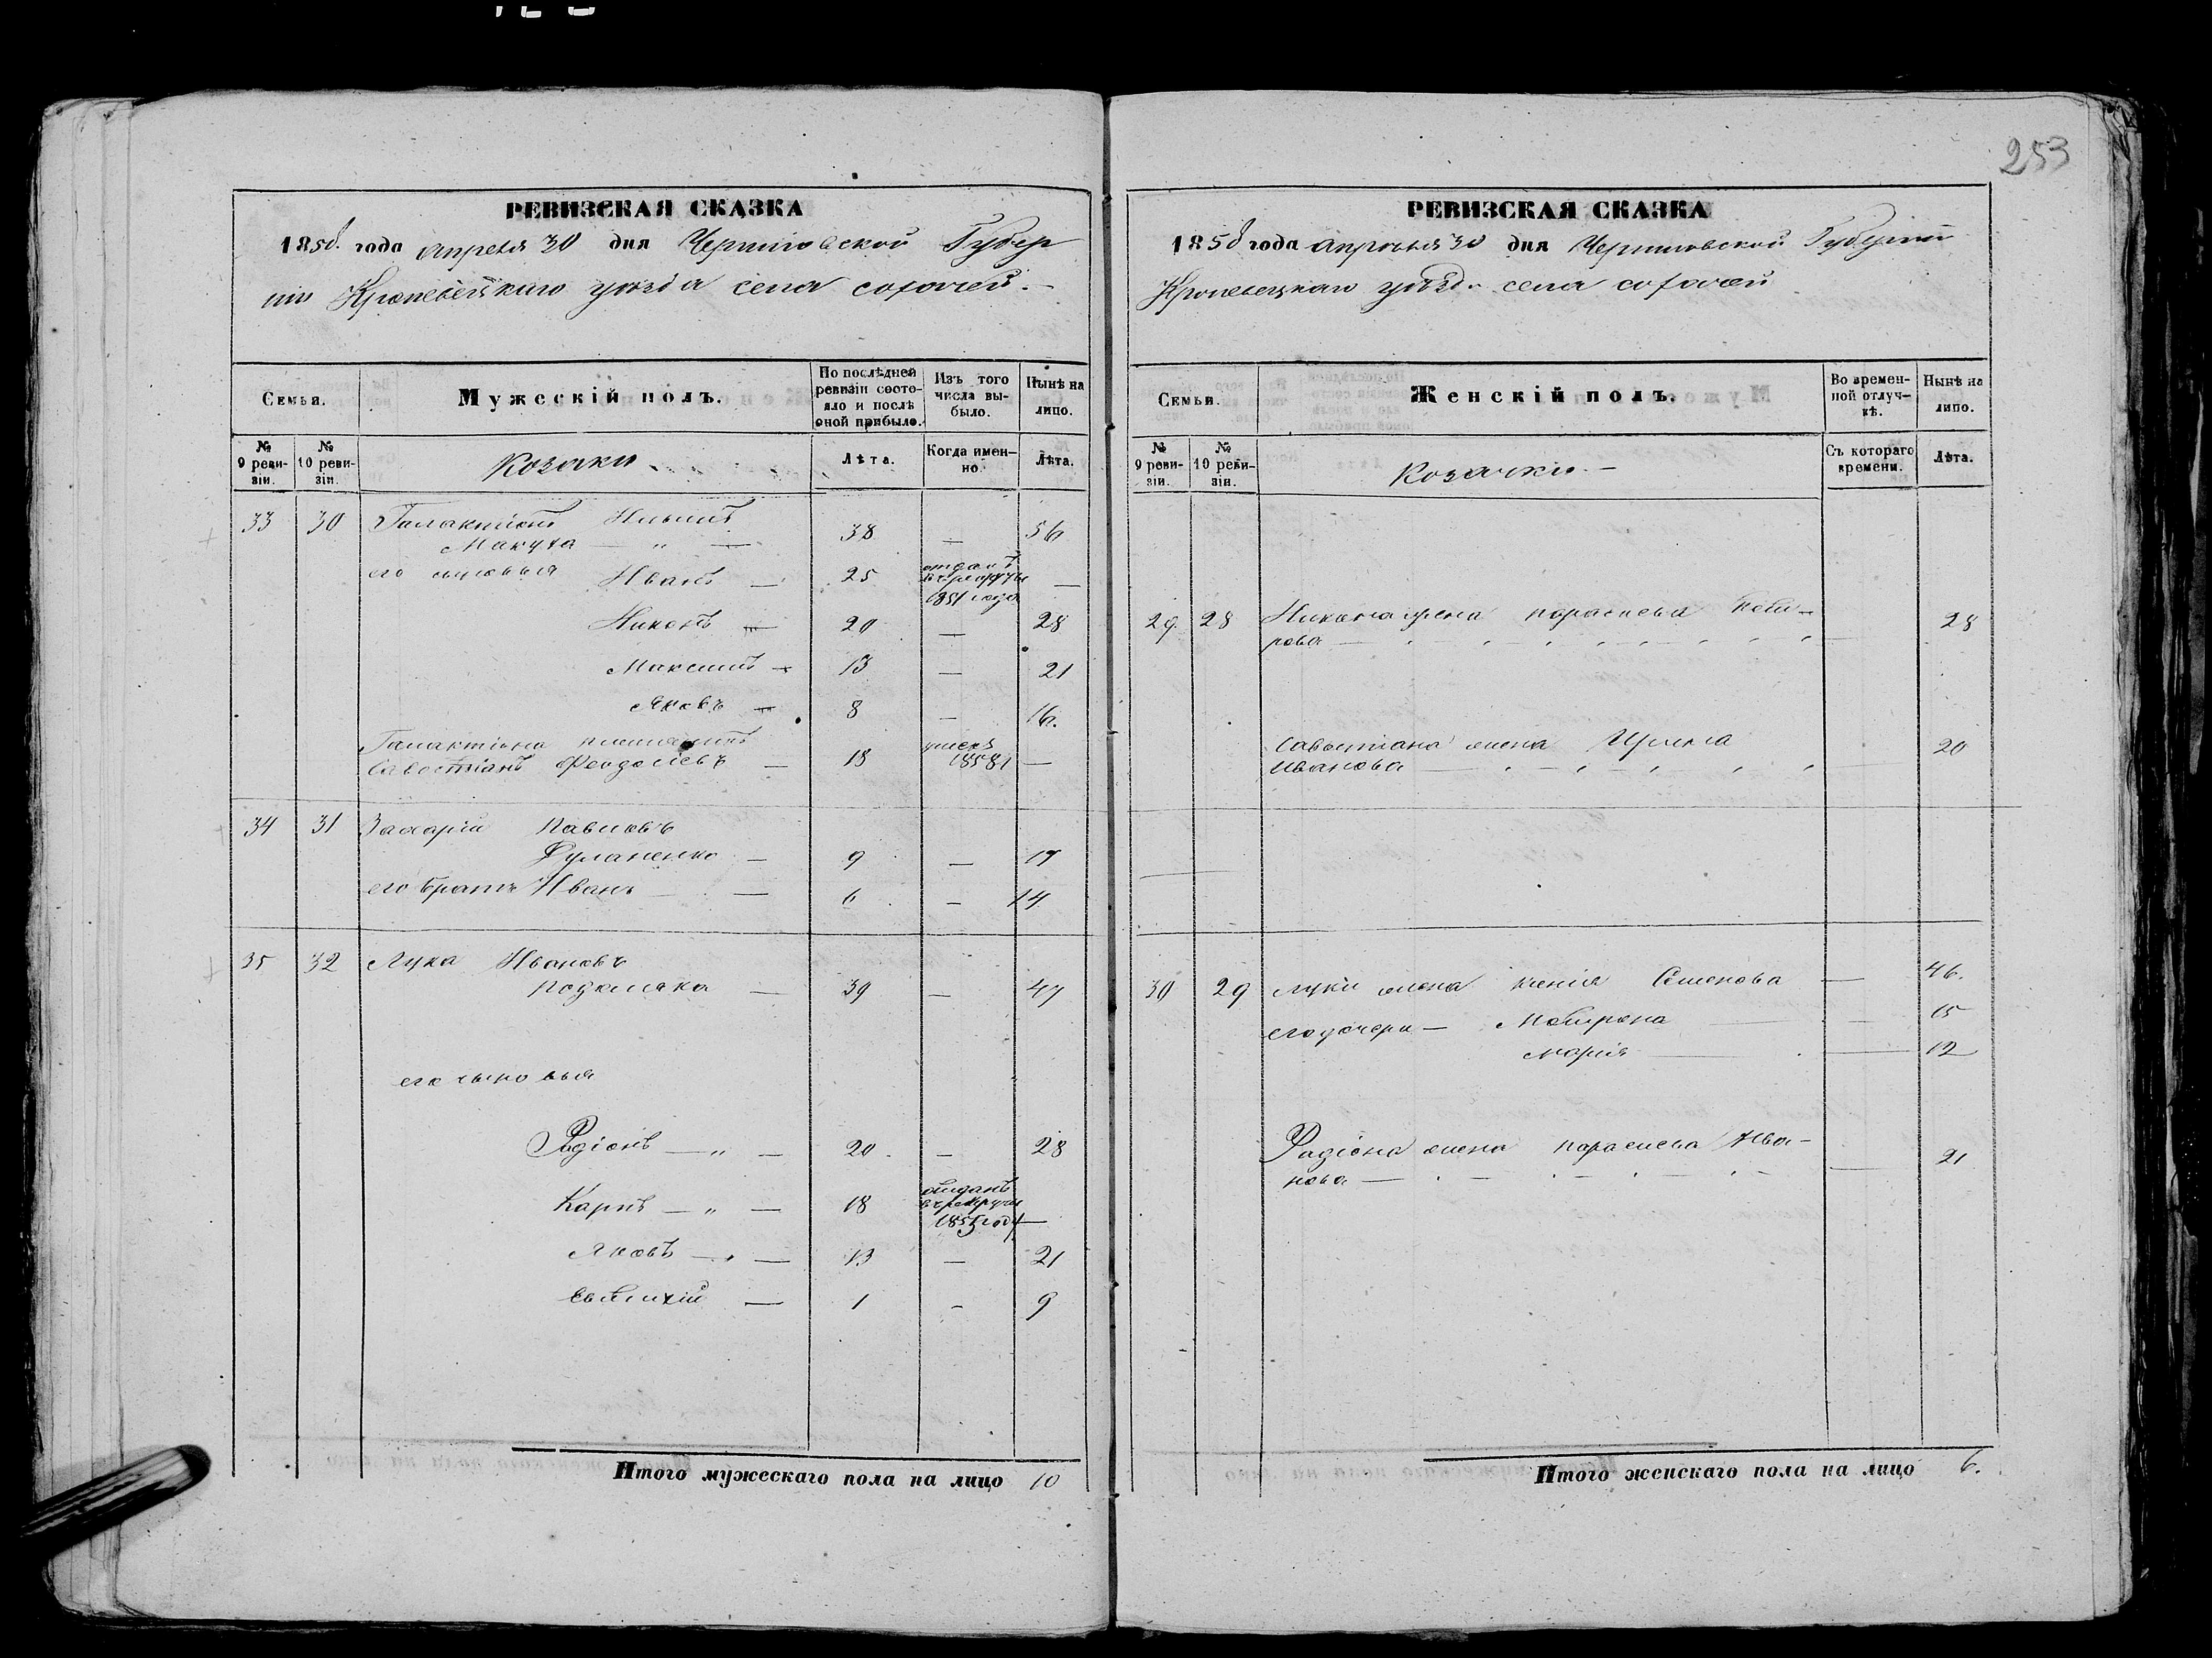 253
РЕВИЗСКАЯ СКАЗКА
1858. года Апреля 30 дня Черниговской Губер
ніи Кролевецкаго уѣзда села
Семьи. Мужескій полъ. По послѣдней ревизіи состояло и послѣ оной прибыло. Изъ того числа выбыло. Нынѣ на лицо.
№ 9 ревизіи. № 10 ревизіи. Козаки Лѣта. Когда именно. Лѣта.
33 30 Галактіонъ Ильинъ
Макуха — „ — 38 — 56
его сыновья Иванъ — 25 отданъ въ рекруты 1851 года —
Никонъ — 20 — 28
Максимъ — 13 — 21
Яковъ — 8 — 16.
Галактіона племянникъ
Савостіанъ — 18 —
34 31 Захарій Павловъ
— 9 — 17
его братъ Иванъ — 6 — 14
35 32 Лука Ивановъ
— 39 — 47
его сыновья
Радіонъ — „ — 20 — 28
Карпъ — „ — 18 отданъ въ рекруты 1855 году —
Яковъ — „ — 13 — 21
— 1 - 9
Итого мужескаго пола на лицо 10
РЕВИЗСКАЯ СКАЗКА
1858 года Апреля 30 дня Черниговской Губерніи
Кролевецкаго уѣзда села
Семьи. Женскій полъ. Во временной отлучкѣ. Нынѣ на лицо.
№ 9 ревизіи. № 10 ревизіи. Козачки — Съ котораго времени. Лѣта.
29. 28 Никона жена Параскева
28
Савостіана жена
Иванова — 20
30 29 Луки жена Ксенія Семенова — 46.
его дочери — Мотрона — 15
Марія — 12
Радіона жена Параскева Ива-
нова — 21
Итого женскаго пола на лицо 6.